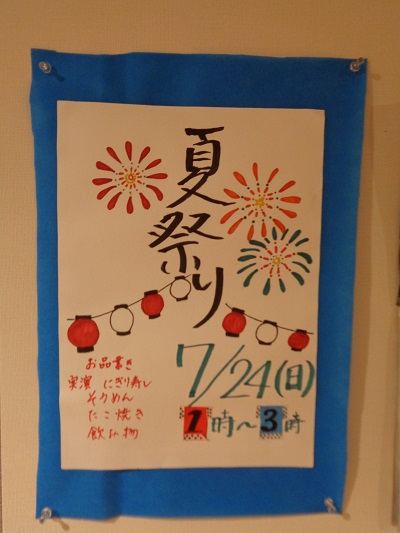 夏祭り
7/24(日)
1時～3時
お品書き
実演 にぎり寿し
そうめん
たこ焼き
飲み物